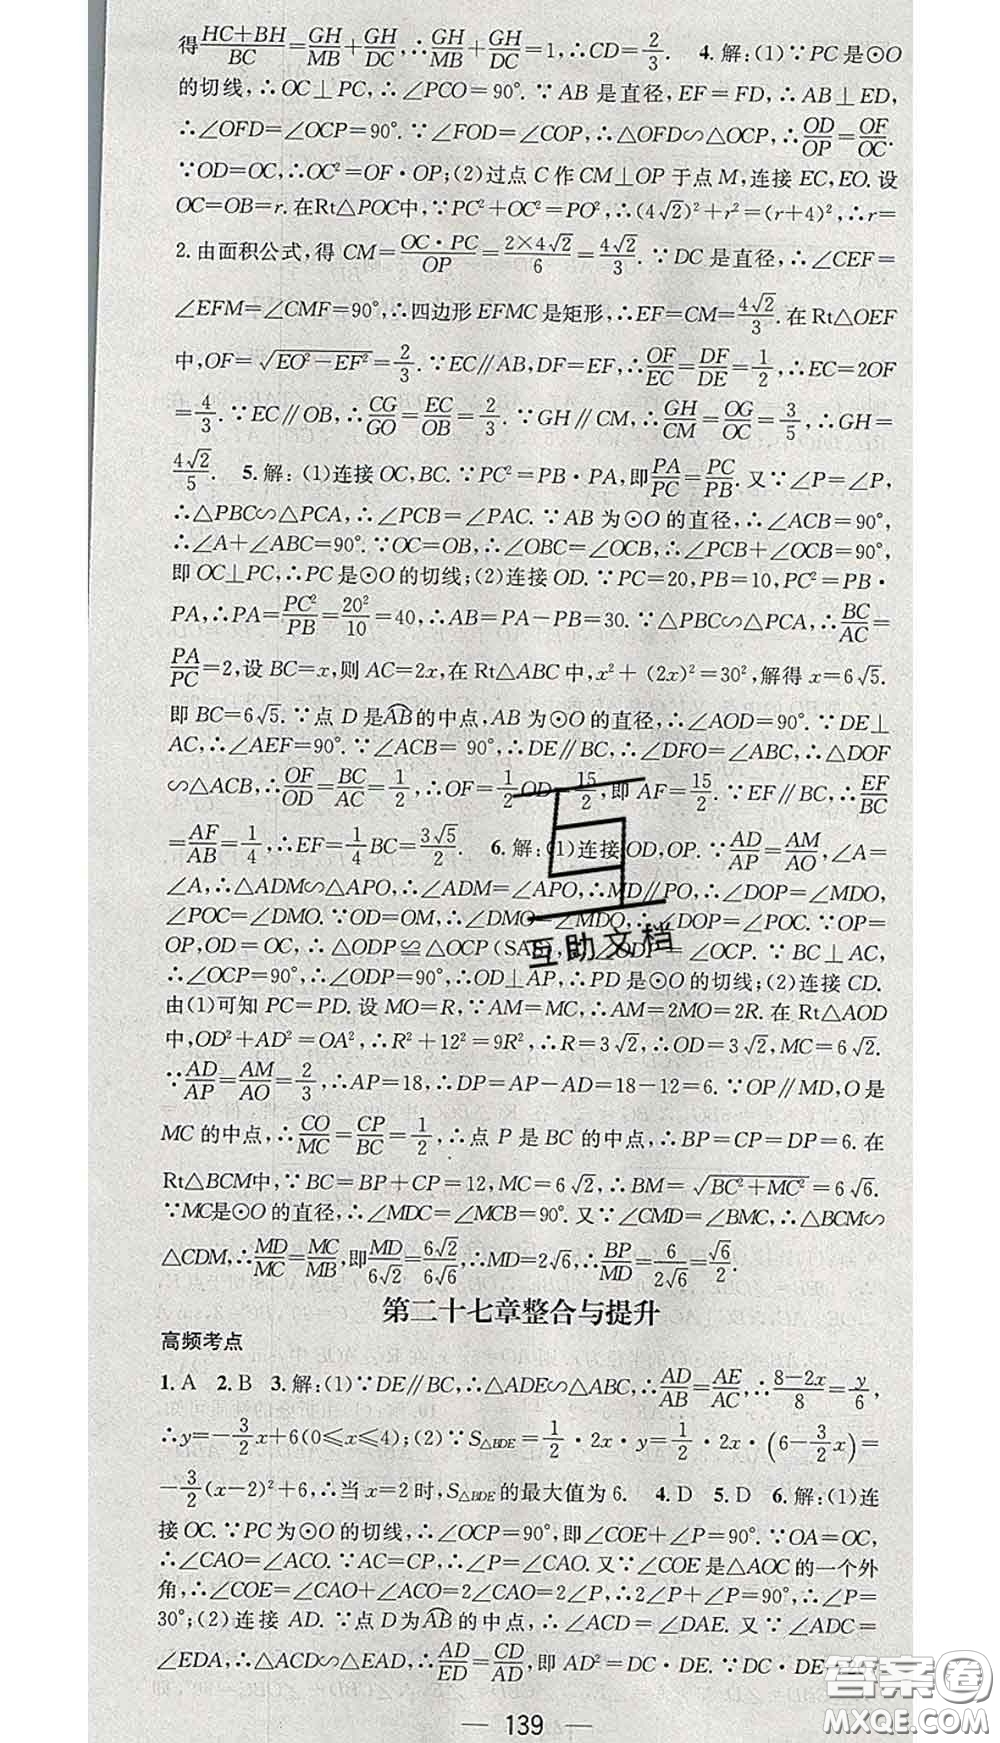 得(HC+BH)/BC=GH/MB+GH/DC,∴GH/MB+GH/DC=1,∴CD=2/3. 4.解:(1)∵PC是⊙O
的切线,∴OC⊥PC,∴∠PCO=90°.∵AB是直径,EF=FD,∴AB⊥ED,
∴∠OFD=∠OCP=90°.∵∠FOD=∠COP,∴△OFD∽△OCP,∴OD/OP=OF/OC.
∵OD=OC,∴OC²=OF·OP;(2)过点C作CM⊥OP于点M,连接EC,EO.设
OC=OB=r.在Rt△POC中,∵PC²+OC²=PO²,∴(4√2)²+r²=(r+4)²,∴r=
2.由面积公式,得CM=OC·PC/OP=2×4√2/6=4√2/3.∵DC是直径,∴∠CEF=
∠EFM=∠CMF=90°,∴四边形EFMC是矩形,∴EF=CM=4√2/3.在Rt△OEF
中,OF=√(EO²-EF²)=2/3.∵EC∥AB,DF=EF,∴OF/EC=DF/DE=1/2,∴EC=2OF
=4/3.∵EC∥OB,∴CG/GO=EC/OB=2/3.∵GH∥CM,∴GH/CM=OG/OC=3/5,∴GH=
4√2/5. 5.解:(1)连接OC,BC.∵PC²=PB·PA,即PA/PC=PC/PB.又∵∠P=∠P,
∴△PBC∽△PCA,∴∠PCB=∠PAC.∵AB为⊙O的直径,∴∠ACB=90°,
∴∠A+∠ABC=90°.∵OC=OB,∴∠OBC=∠OCB,∴∠PCB+∠OCB=90°,
即OC⊥PC,∴PC是⊙O的切线;(2)连接OD.∵PC=20,PB=10,PC²=PB·
PA,∴PA=PC²/PB=20²/10=40,∴AB=PA-PB=30.∵△PBC∽△PCA,∴BC/AC=
PA/PC=2,设BC=x,则AC=2x,在Rt△ABC中,x²+(2x)²=30²,解得x=6√5.
即BC=6√5.∵点D是AB的中点,AB为⊙O的直径,∴∠AOD=90°.∵DE⊥
AC,∴∠AEF=90°.∵∠ACB=90°,∴DE∥BC,∴∠DFO=∠ABC,∴△DOF
∽△ACB,∴OF/OD=BC/AC=1/2,∴OF=1/2OD=15/2,即AF=15/2.∵EF∥BC,∴EF/BC
=AF/AB=1/4,∴EF=1/4BC=3√5/2. 6.解:(1)连接OD,OP.∵AD/AP=AM/AO,∠A=
∠A,∴△ADM∽△APO,∴∠ADM=∠APO,∴MD∥PO,∴∠DOP=∠MDO,
∠POC=∠DMO.∵OD=OM,∴∠DMO=∠MDO,∴∠DOP=∠POC.∵OP=
OP,OD=OC,∴△ODP≌△OCP(SAS),∴∠ODP=∠OCP.∵BC⊥AC,
∴∠OCP=90°,∴∠ODP=90°,∴OD⊥AP,∴PD是⊙O的切线;(2)连接CD.
由(1)可知PC=PD.设MO=R,∵AM=MC,∴AM=2MO=2R.在Rt△AOD
中,OD²+AD²=OA²,∴R²+12²=9R²,∴R=3√2,∴OD=3√2,MC=6√2.
∵AD/AP=AM/AO=2/3,∴AP=18,∴DP=AP-AD=18-12=6.∵OP∥MD,O是
MC的中点,∴CO/MC=CP/BC=1/2,∴点P是BC的中点,∴BP=CP=DP=6.在
Rt△BCM中,∵BC=BP+CP=12,MC=6√2,∴BM=√(BC²+MC²)=6√6.
∵MC是⊙O的直径,∴∠MDC=∠MCB=90°.又∵∠CMD=∠BMC,∴△BCM∽
△CDM,∴MD/MC=MC/MB,即MD/6√2=6√2/6√6,∴MD=2√6,∴BP/MD=6/2√6=√6/2.
第二十七章整合与提升
高频考点
1.A 2.B 3.解:(1)∵DE∥BC,∴△ADE∽△ABC,∴AD/AB=AE/AC,∴(8-2x)/8=y/6,
∴y=-3/2x+6(0≤x≤4);(2)∵S△BDE=1/2·2x·y=1/2·2x·(6-3/2x)=
-3/2(x-2)²+6,∴当x=2时,S△BDE的最大值为6. 4.D 5.D 6.解:(1)连
接OC.∵PC为⊙O的切线,∴∠OCP=90°,即∠COE+∠P=90°.∵OA=OC,
∴∠CAO=∠ACO.∵AC=CP,∴∠P=∠CAO.又∵∠COE是△AOC的一个外
角,∴∠COE=∠CAO+∠ACO=2∠CAO=2∠P,∴2∠P+∠P=90°,∴∠P=
30°;(2)连接AD.∵点D为AB的中点,∴∠ACD=∠DAE.又∵∠ADC=
∠EDA,∴△ACD∽△EAD,∴AD/ED=CD/AD,即AD²=DC·DE.∵DC·DE=
— 139 —
互助文档
答案圈
MXQE.COM